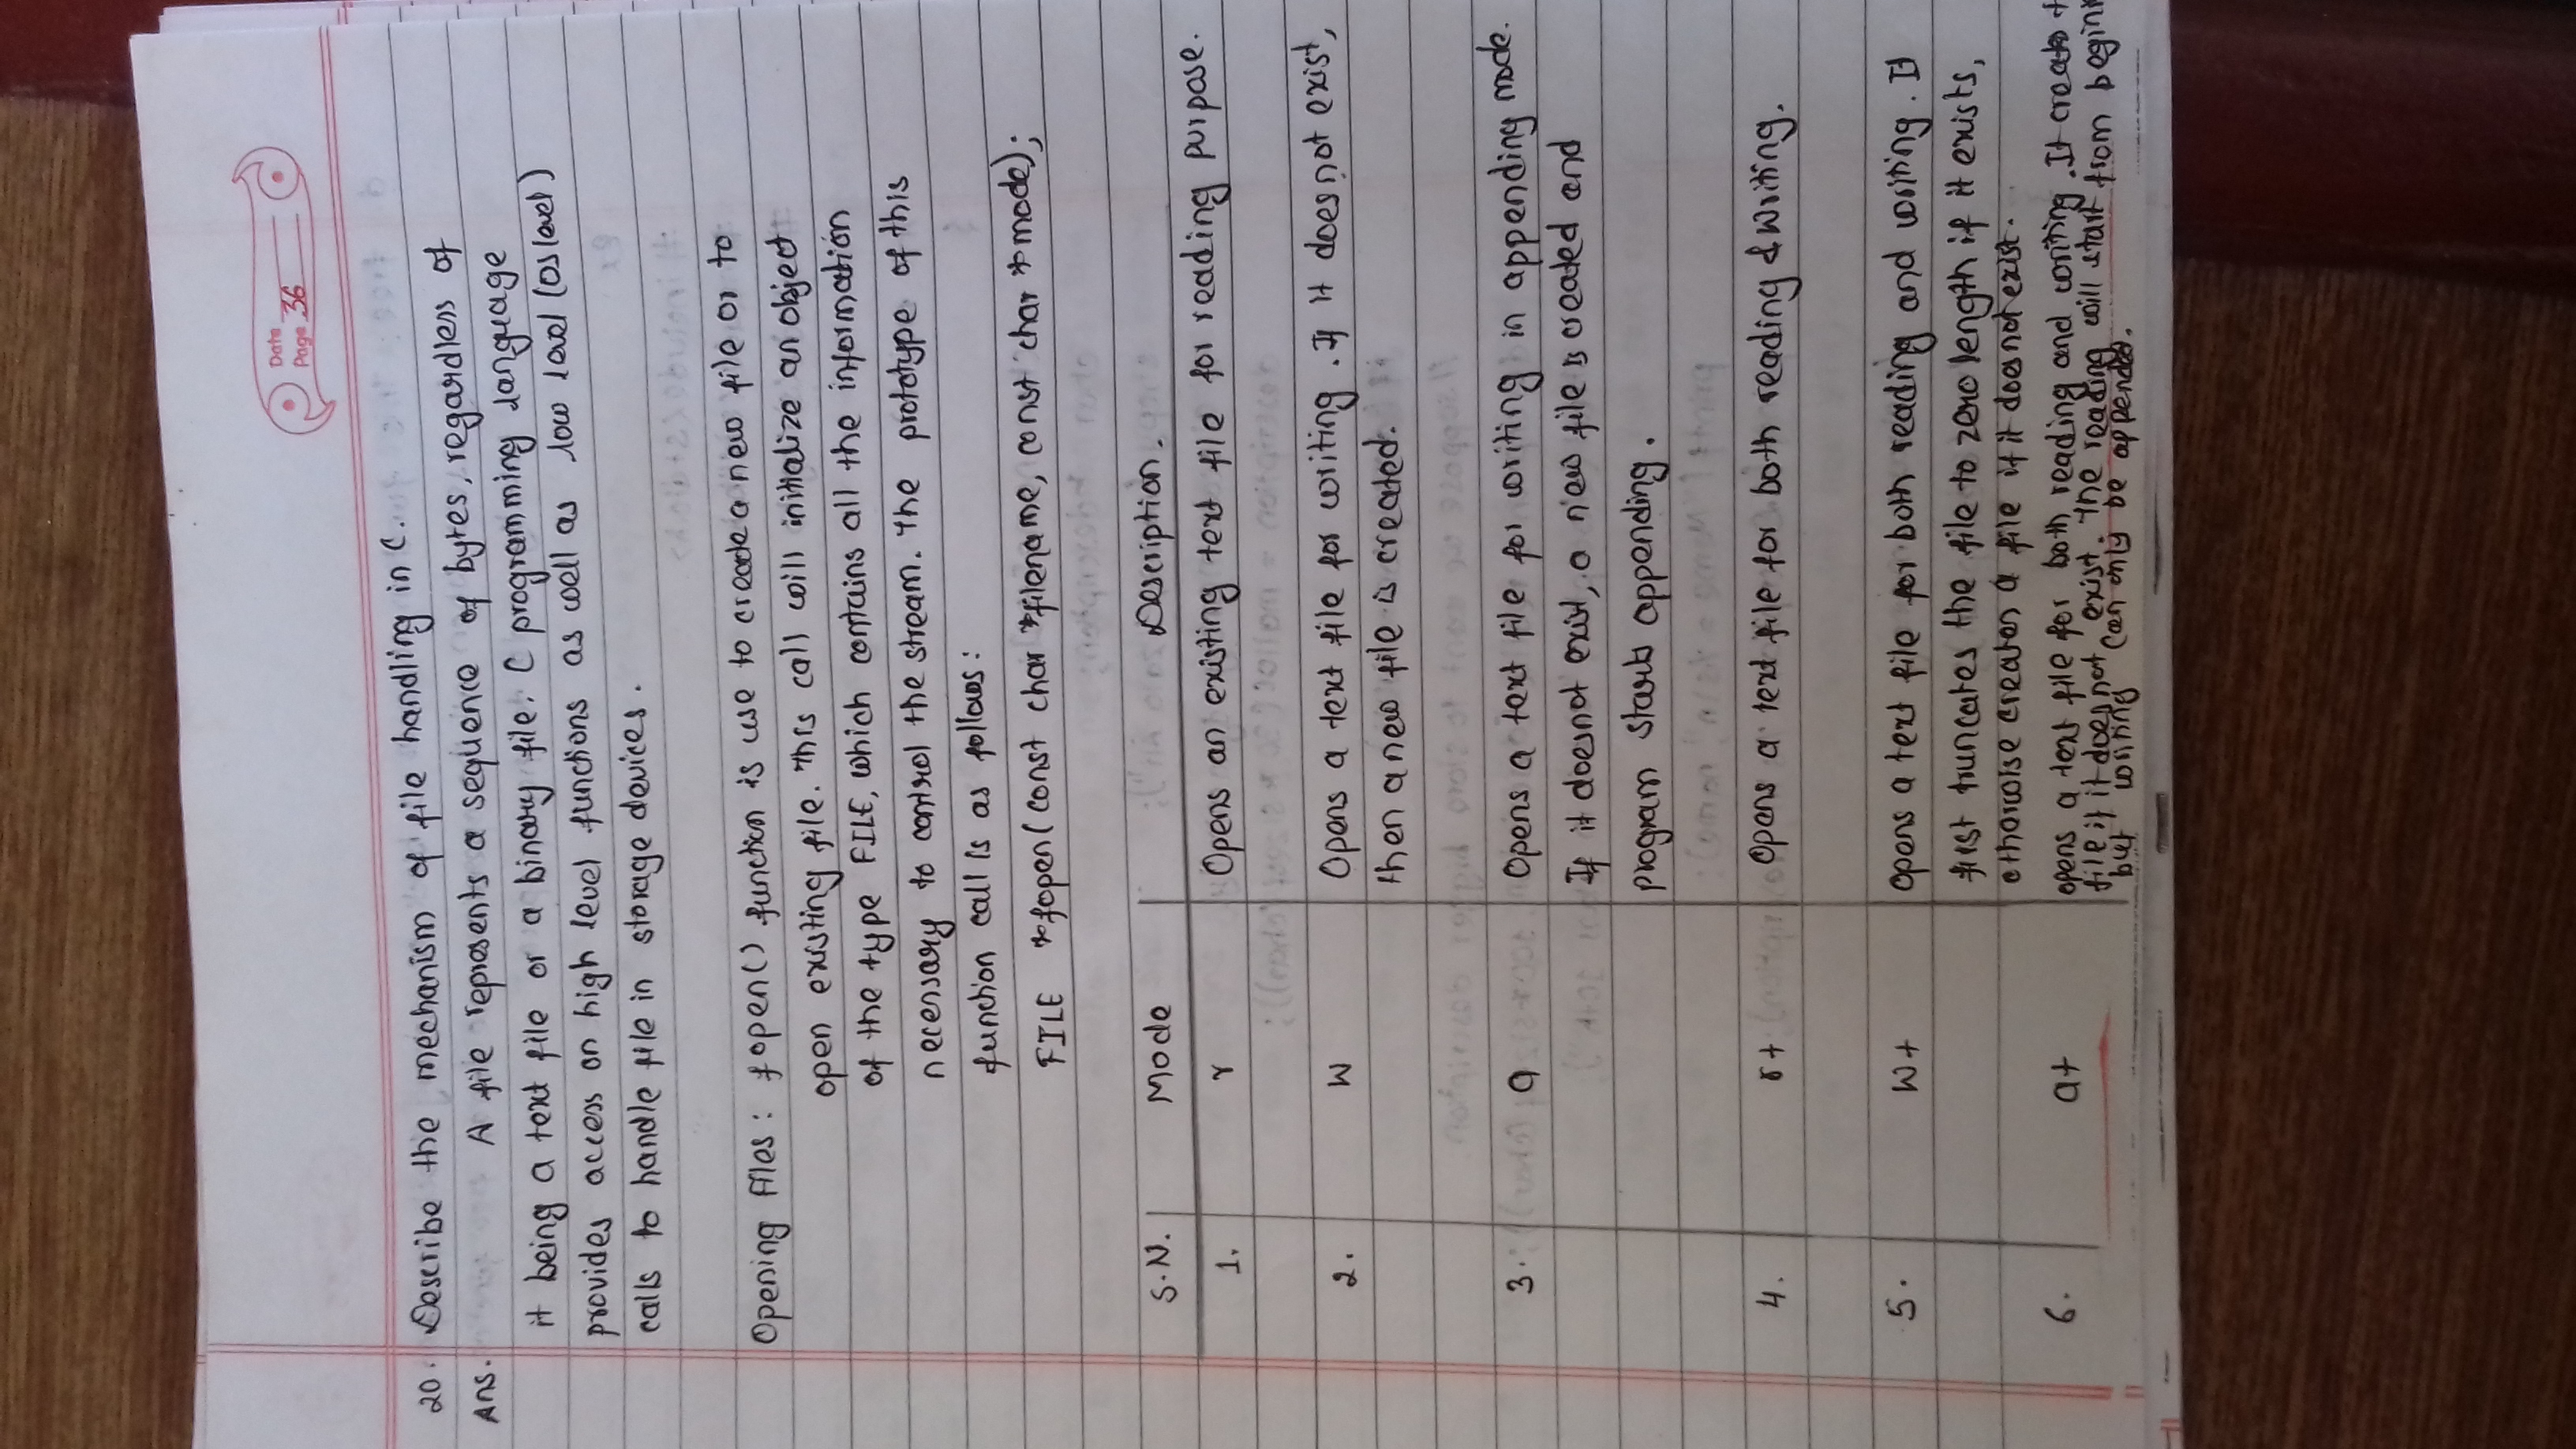 Date
Page 36
20. Describe the mechanism of file handling in C.
Ans. A file represents a sequence of bytes, regardless of
it being a text file or a binary file. C programming language
provides access on high level functions as well as low level (OS level)
calls to handle file in storage devices.
Opening Files: fopen() function is use to create a new file or to
open existing file. This call will initialize an object
of the type FILE, which contains all the information
necessary to control the stream. The prototype of this
function call is as follows:
FILE *fopen(const char *filename, const char *mode);
S.N. Mode Description.
1. r Opens an existing text file for reading purpose.
2. w Opens a text file for writing. If it does not exist,
then a new file is created.
3. a Opens a text file for writing in appending mode.
If it does not exist, a new file is created and
program starts appending.
4. r+ Opens a text file for both reading & writing.
5. w+ opens a text file for both reading and writing. It
first truncates the file to zero length if it exists,
otherwise creates a file if it does not exist.
6. a+ opens a text file for both reading and writing. It creates
file if it does not exist. The reading will start from
but writing can only be appended.